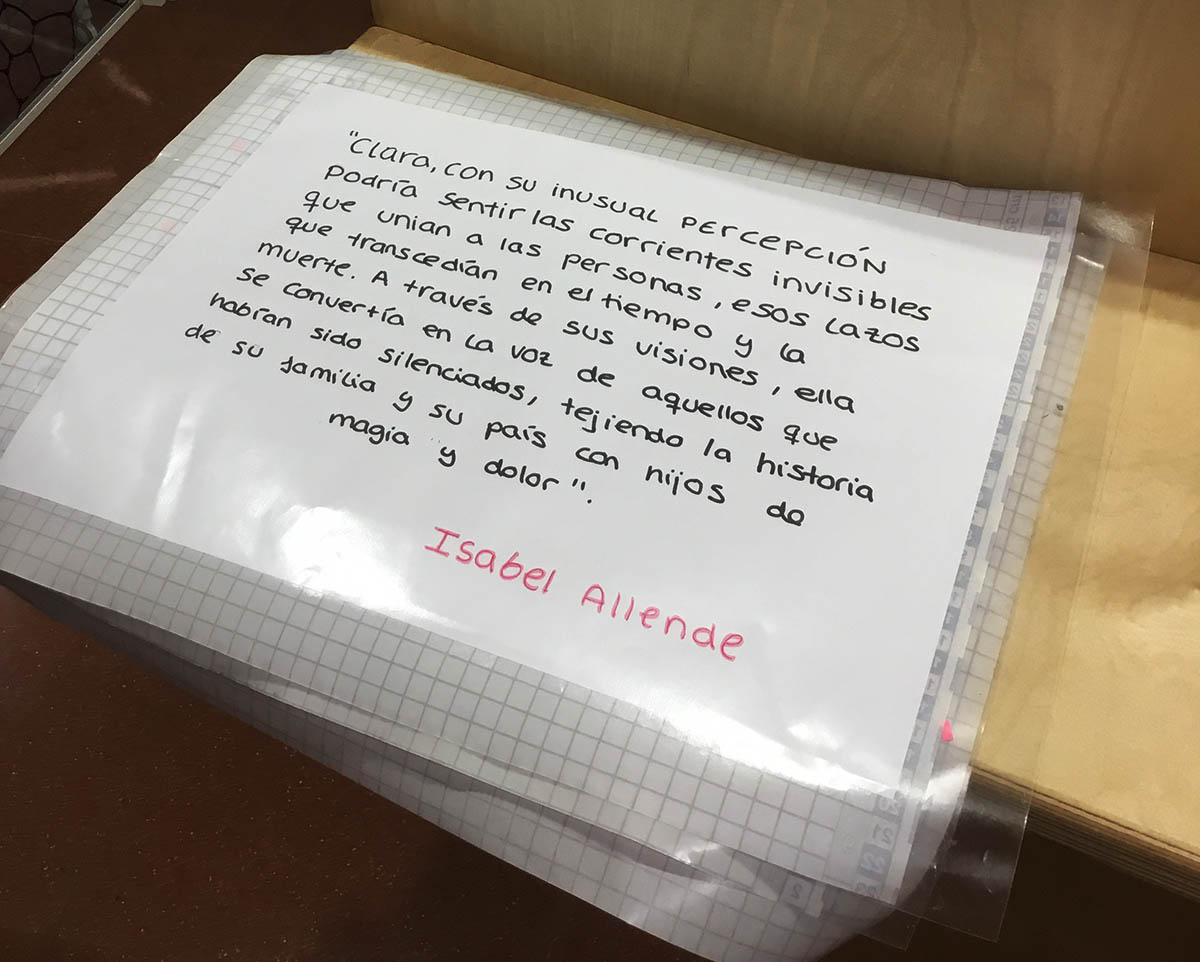 "Clara, con su inusual percepción
podría sentir las corrientes invisibles
que unian a las personas, esos lazos
que transcedían en el tiempo y la
muerte. A través de sus visiones, ella
se convertía en la voz de aquellos que
habían sido silenciados, tejiendo la historia
de su familia y su país con hijos de
magia y dolor".
Isabel Allende